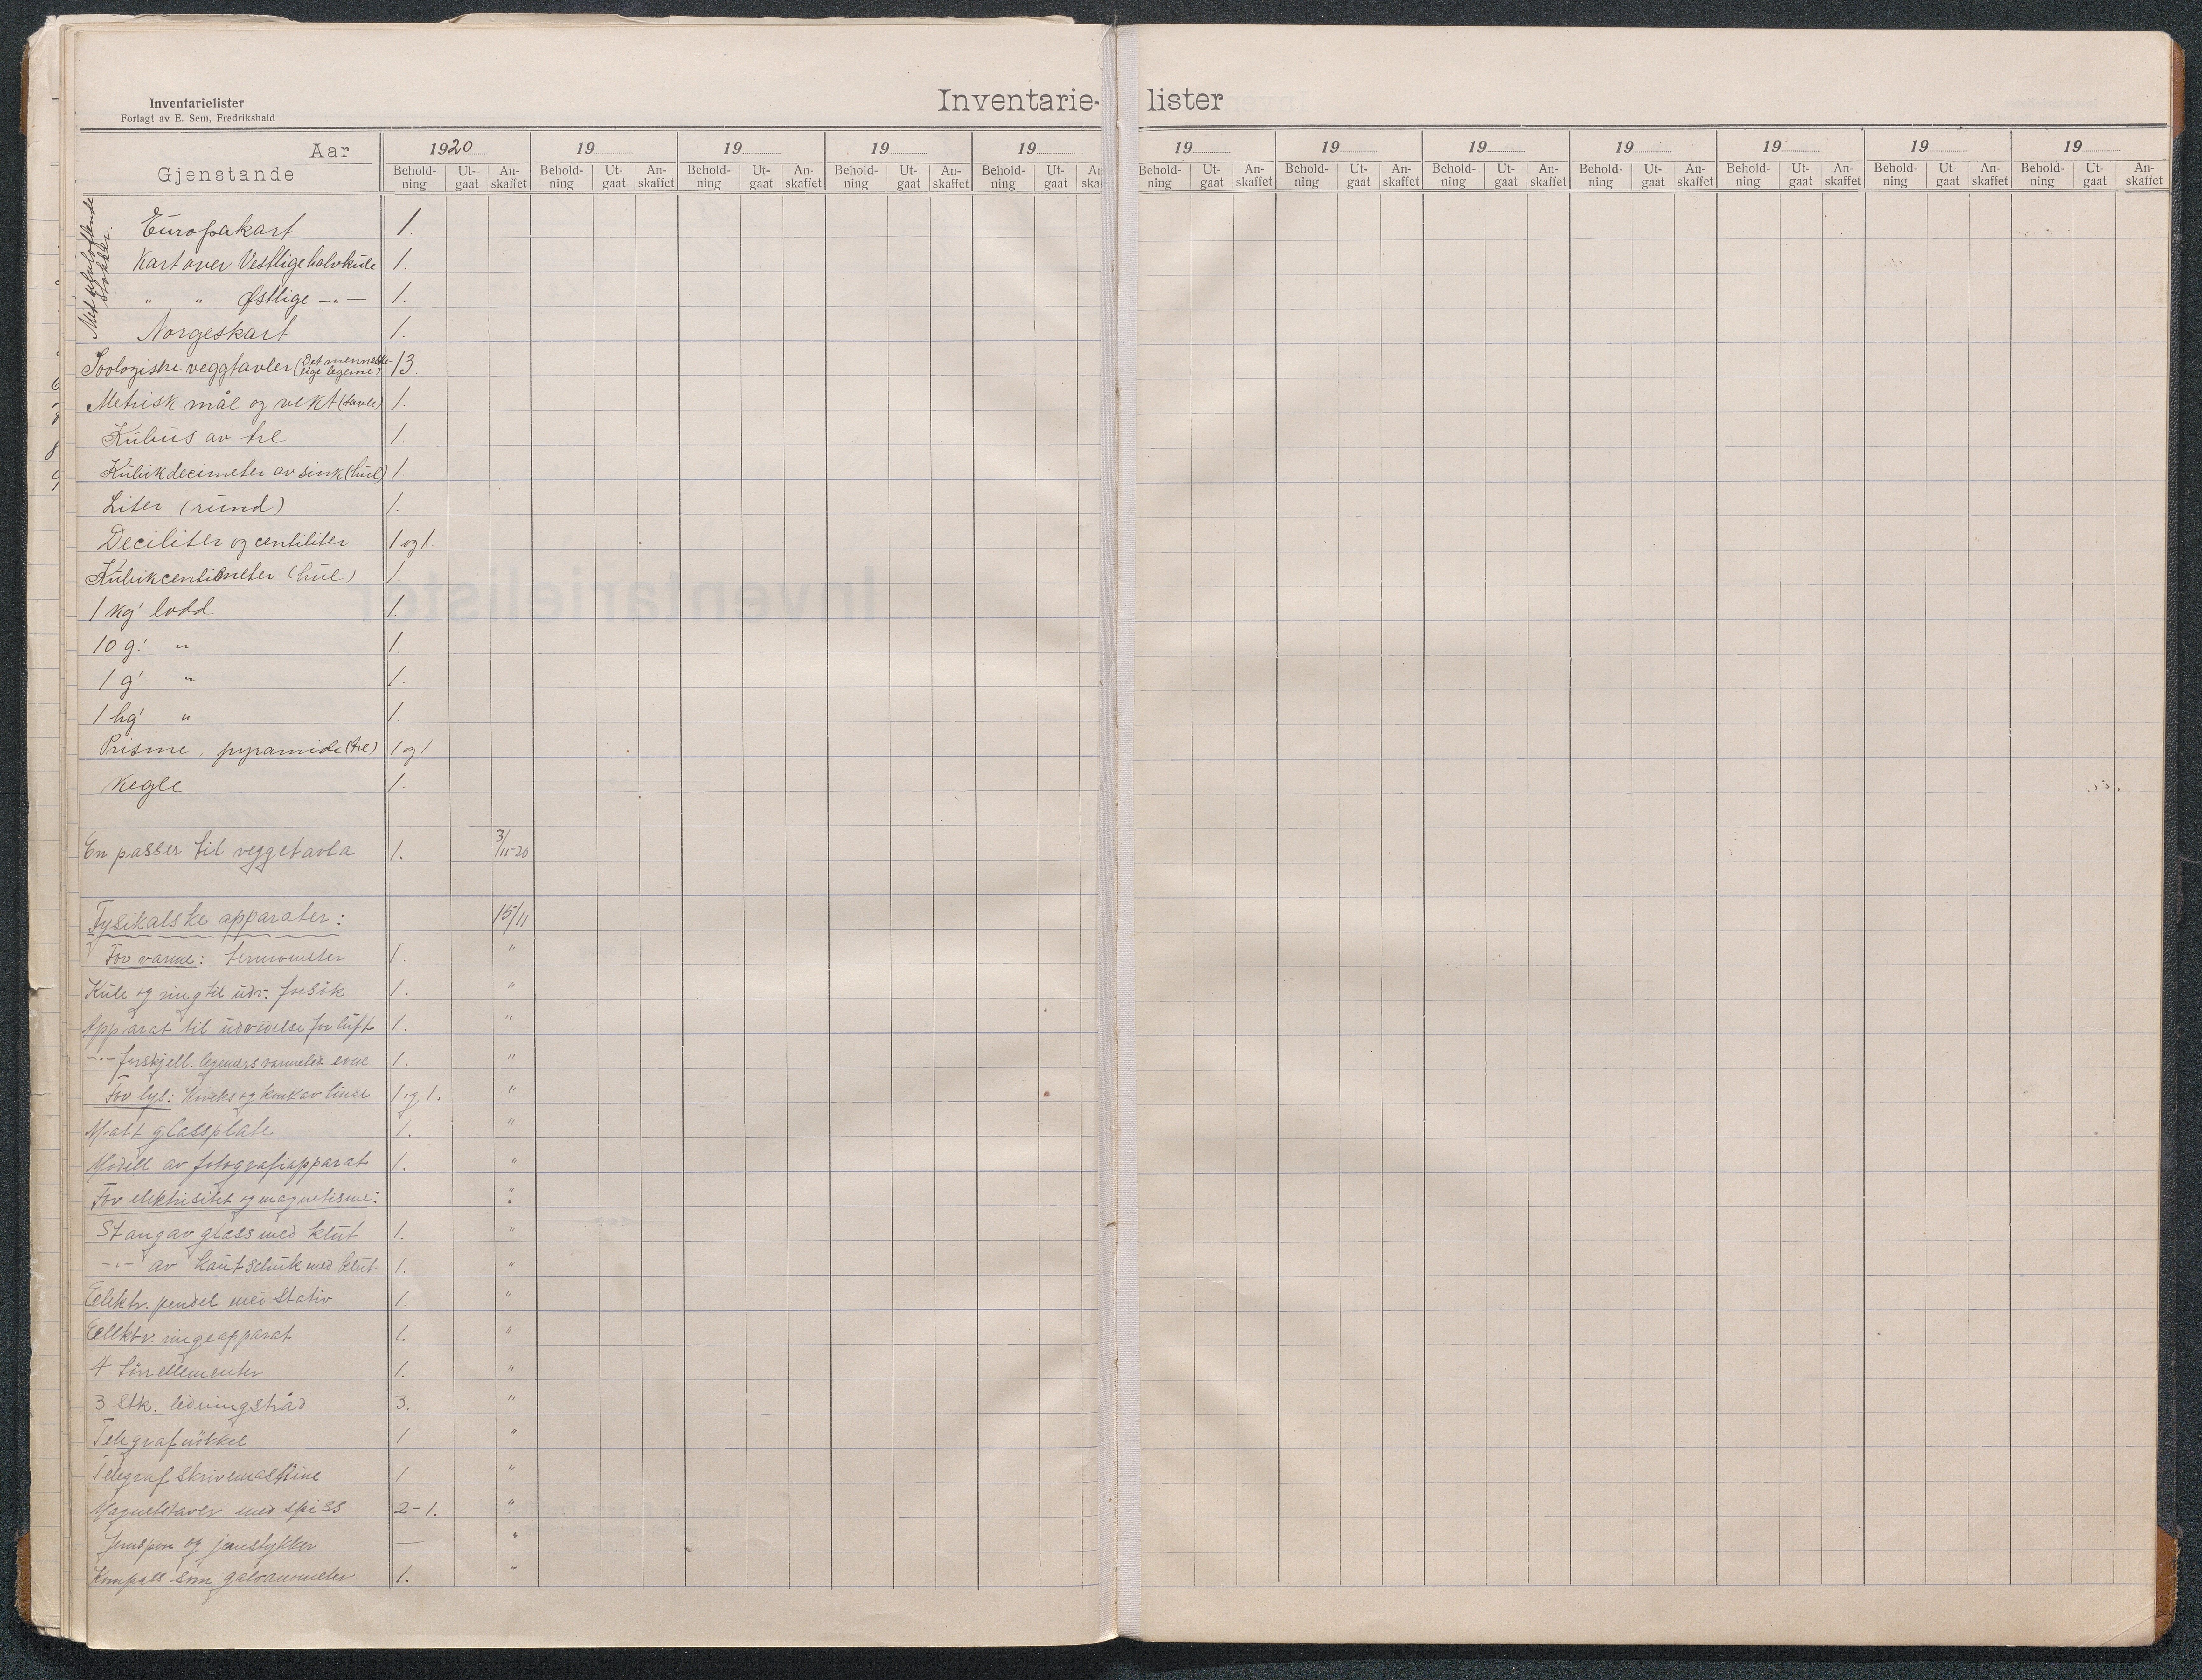 Inventarielister
Forlagt av E. Sem, Fredrikshald
Inventarie- lister
Aar 1920 19 19 19 19 19 19 19 19 19 19 19
Gjenstande Behold-ning Ut-gaat An-skaffet Behold-ning Ut-gaat An-skaffet Behold-ning Ut-gaat An-skaffet Behold-ning Ut-gaat An-skaffet Behold-ning Ut-gaat An-skaf Behold-ning Ut-gaat An-skaffet Behold-ning Ut-gaat An-skaffet Behold-ning Ut-gaat An-skaffet Behold-ning Ut-gaat An-skaffet Behold-ning Ut-gaat An-skaffet Behold-ning Ut-gaat An-skaffet Behold-ning Ut-gaat An-skaffet
stokker.
Europakart 1.
Kart over Vestlige halvkule 1.
" " Østlige —"— 1.
Norgeskart 1.
Soologiske veggtavler (Det menneske-lige legeme) 13.
Metrisk mål og vekt (tavle) 1.
Kubus av tre 1.
Kubikdecimeter av sink (hul) 1.
Liter (rund) 1.
Deciliter og centiliter 1 og 1.
Kubikcentimeter (hul) 1.
1 kg' lodd 1.
10 g' " 1.
1 g' " 1.
1 hg' " 1.
Prisme, pyramide (tre) 1 og 1
Kegle 1.
En passer til veggetavla 1. 3/11-20
Fysikalske apparater: 15/11
For varme: termometer 1. "
Kule og ring til udv. forsøk 1. "
Apparat til udvidelse for luft 1. "
-"- forskjell. legemers varmeled. evne 1. "
For lys: Konveks og konkav linse 1 og 1. "
Matt glassplate 1. "
Modell av fotografiapparat 1. "
For elektrisitet og magnetisme: "
Stang av glass med klut 1. "
-"- av kautschuk med klut 1. "
Elektr. pendel med stativ 1. "
Elektr. ringeapparat 1. "
4 tørrellementer 1. "
3 stk. ledningstråd 3. "
Telegrafnøkkel 1 "
Telegraf skrivemaskine 1 "
Magnetstaver med spiss 2-1. "
Jernspon og jernstykker — "
Kompass som galvanometer 1. "